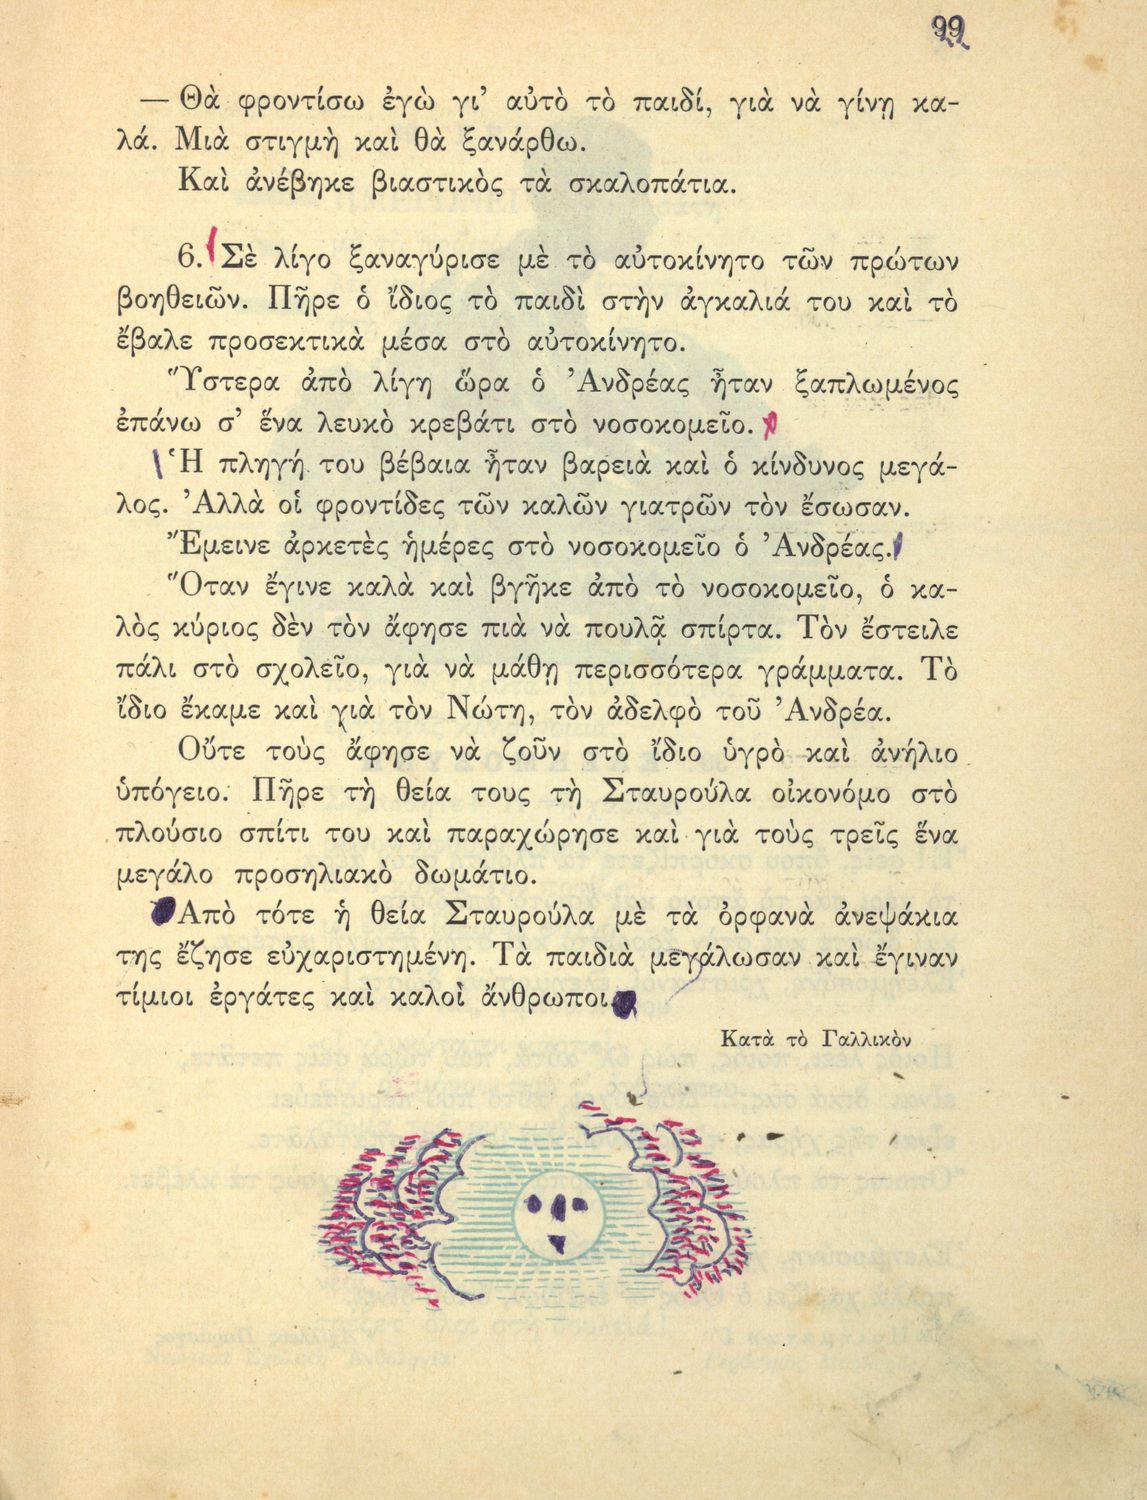 99
— Θὰ φροντίσω ἐγὼ γι’ αὐτὸ τὸ παιδί, γιὰ νὰ γίνῃ κα-
λά. Μιὰ στιγμὴ καὶ θὰ ξανάρθω.
Καὶ ἀνέβηκε βιαστικὸς τὰ σκαλοπάτια.
6. Σὲ λίγο ξαναγύρισε μὲ τὸ αὐτοκίνητο τῶν πρώτων
βοηθειῶν. Πῆρε ὁ ἴδιος τὸ παιδὶ στὴν ἀγκαλιά του καὶ τὸ
ἔβαλε προσεκτικὰ μέσα στὸ αὐτοκίνητο.
Ὕστερα ἀπὸ λίγη ὥρα ὁ Ἀνδρέας ἦταν ξαπλωμένος
ἐπάνω σ’ ἕνα λευκὸ κρεβάτι στὸ νοσοκομεῖο.
Ἡ πληγή του βέβαια ἦταν βαρειὰ καὶ ὁ κίνδυνος μεγά-
λος. Ἀλλὰ οἱ φροντίδες τῶν καλῶν γιατρῶν τὸν ἔσωσαν.
Ἔμεινε ἀρκετὲς ἡμέρες στὸ νοσοκομεῖο ὁ Ἀνδρέας.
Ὅταν ἔγινε καλὰ καὶ βγῆκε ἀπὸ τὸ νοσοκομεῖο, ὁ κα-
λὸς κύριος δὲν τὸν ἄφησε πιὰ νὰ πουλᾷ σπίρτα. Τὸν ἔστειλε
πάλι στὸ σχολεῖο, γιὰ νὰ μάθῃ περισσότερα γράμματα. Τὸ
ἴδιο ἔκαμε καὶ γιὰ τὸν Νώτη, τὸν ἀδελφὸ τοῦ Ἀνδρέα.
Οὔτε τοὺς ἄφησε νὰ ζοῦν στὸ ἴδιο ὑγρὸ καὶ ἀνήλιο
ὑπόγειο. Πῆρε τὴ θεία τους τὴ Σταυρούλα οἰκονόμο στὸ
πλούσιο σπίτι του καὶ παραχώρησε καὶ γιὰ τοὺς τρεῖς ἕνα
μεγάλο προσηλιακὸ δωμάτιο.
Ἀπὸ τότε ἡ θεία Σταυρούλα μὲ τὰ ὀρφανὰ ἀνεψάκια
της ἔζησε εὐχαριστημένη. Τὰ παιδιὰ μεγάλωσαν καὶ ἔγιναν
τίμιοι ἐργάτες καὶ καλοὶ ἄνθρωποι.
Κατὰ τὸ Γαλλικὸν